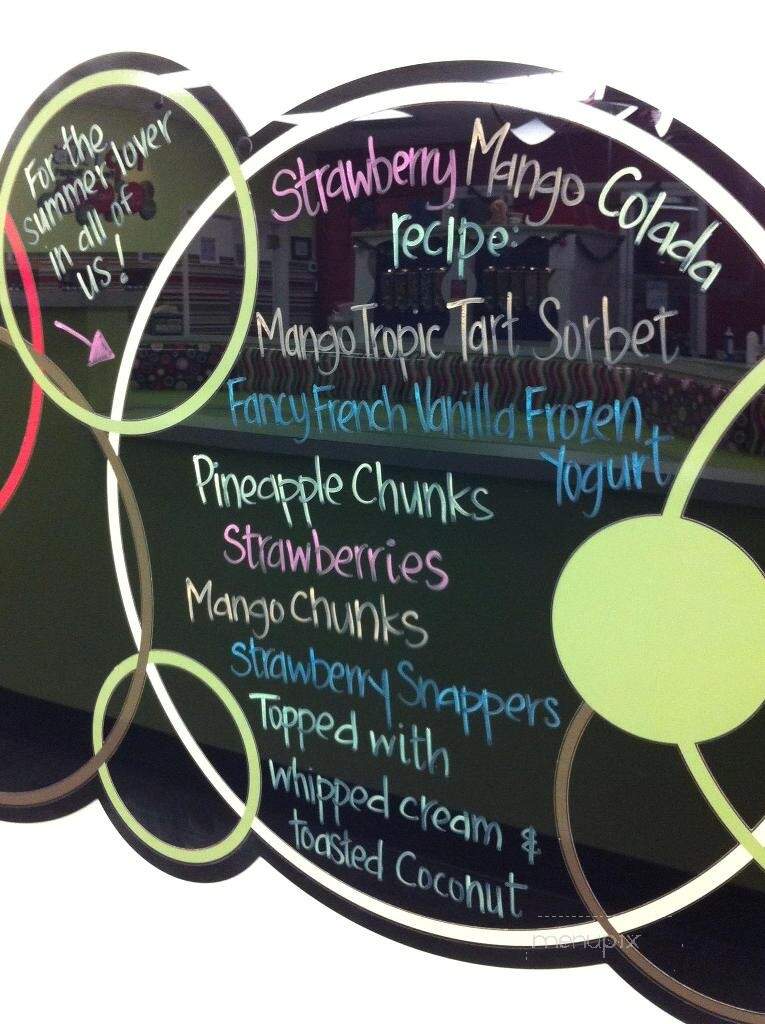 For the
summer lover
in all of
us!
Strawberry Mango Colada
recipe:
Mango Tropic Tart Sorbet
Fancy French Vanilla Frozen
Yogurt
Pineapple Chunks
Strawberries
Mango Chunks
Strawberry Snappers
Topped with
whipped cream &
toasted Coconut
menupix